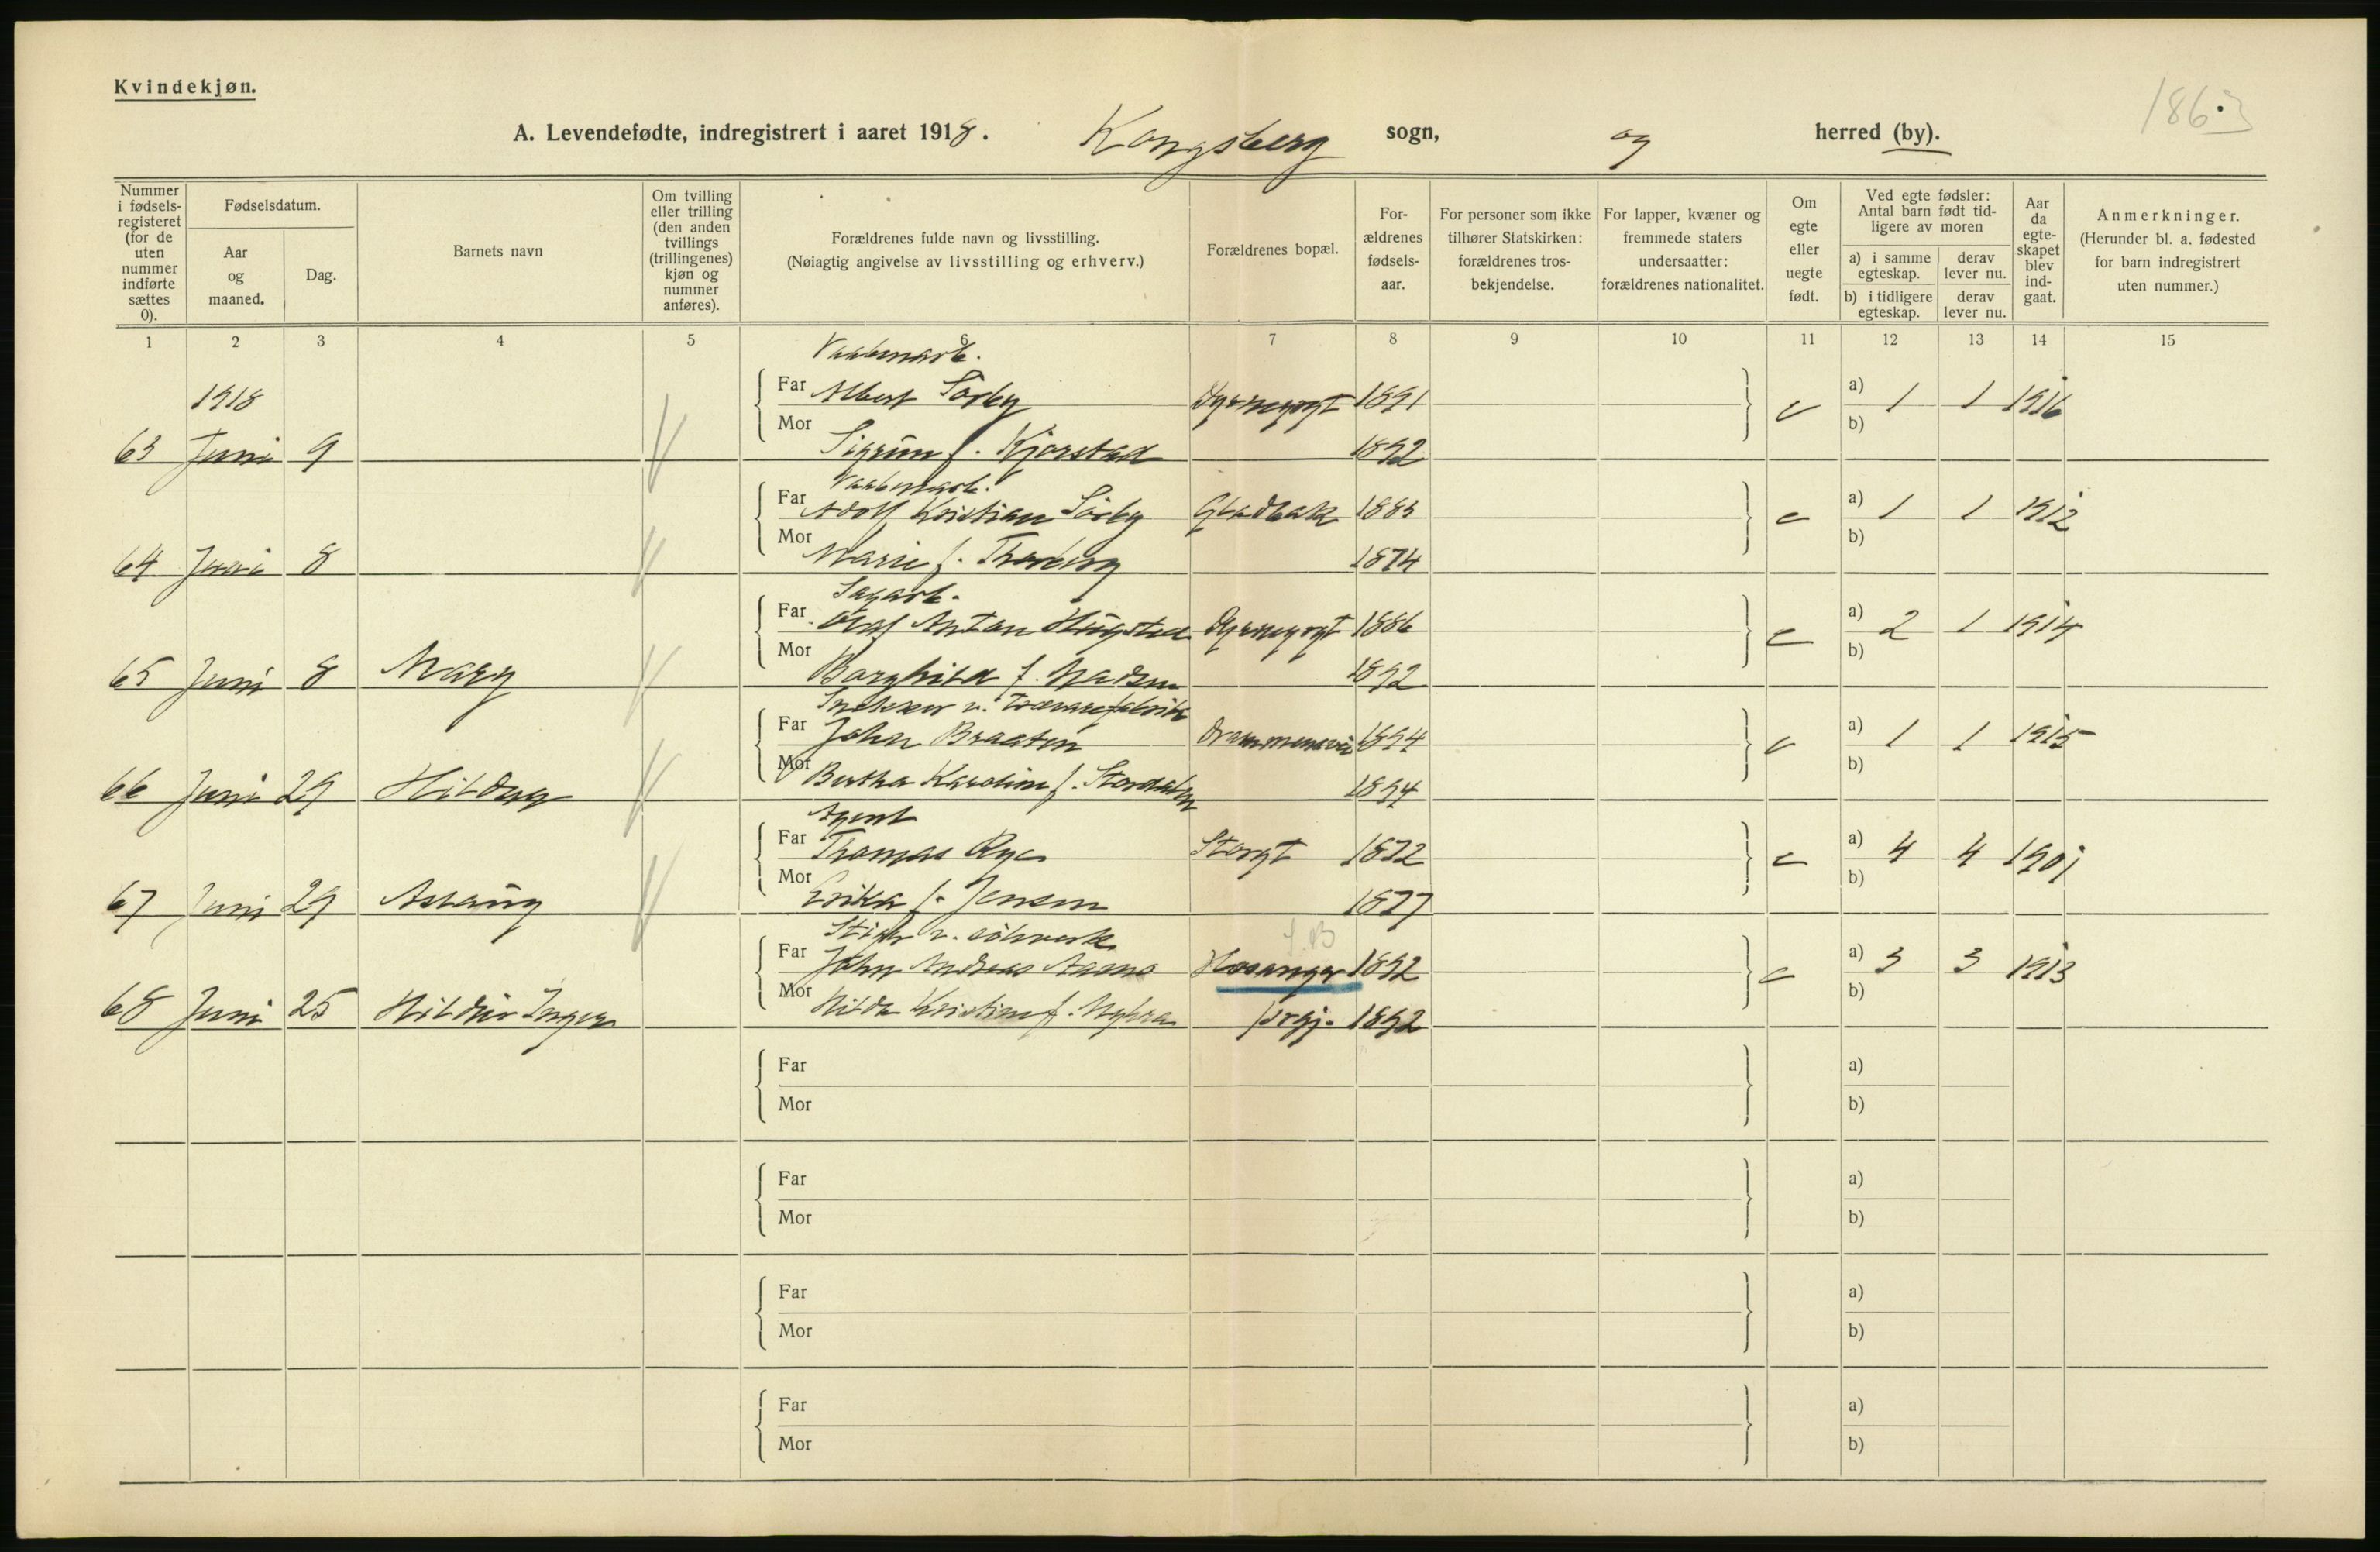 Kvindekjøn.
1863
A. Levendefødte, indregistrert i aaret 1918. Kongsberg sogn, og herred (by).
Nummer i fødsels-registeret (for de uten nummer indførte sættes 0).
Fødselsdatum.
Aar og maaned.
Dag.
Barnets navn
Om tvilling eller trilling (den anden tvillings (trillingenes) kjøn og nummer anføres).
Forældrenes fulde navn og livsstilling.
(Nøiagtig angivelse av livsstilling og erhverv.)
Forældrenes bopæl.
For-ældrenes fødsels-aar.
For personer som ikke tilhører Statskirken: forældrenes tros-bekjendelse.
For lapper, kvæner og fremmede staters undersaatter: forældrenes nationalitet.
Om egte eller uegte født.
Ved egte fødsler: Antal barn født tid-ligere av moren
a) i samme egteskap.
derav lever nu.
b) i tidligere egteskap.
derav lever nu.
Aar da egte-skapet blev ind-gaat.
Anmerkninger.
(Herunder bl. a. fødested for barn indregistrert uten nummer.)
1 2 3 4 5 6 7 8 9 10 11 12 13 14 15
Vaabenarb.
1918 Far Albert Sørby Dyrmyrgt 1891 e a) 1 1 1916
Mor b)
63 Juni 9 Sigrun f. Kjorstad 1892
Vaabenarb.
Far Adolf Kristian Sørby Gladbak 1883 e a) 1 1 1912
Mor b)
64 Juni 8 Marie f. 1874
Sagarb.
Far Olaf Anton Dyrmyrgt 1886 e a) 2 1 1914
Mor b)
65 Juni 8 Mary Borghild f. Madsen 1892
Snekker v. Trævarefabrik
Far John Braaten Drammensvei 1894 e a) 1 1 1915
Mor b)
66 Juni 29 Hildur Bertha Karoline f. Stordalen 1894
Agent
Far Thomas Rye Storgt 1872 e a) 4 4 1901
Mor b)
67 Juni 29 Aslaug Erika f. Jensen 1877
Stiger v. sølvverk
Far John Andreas Aasmo 1892 e a) 3 3 1913
Mor b)
68 Juni 25 Hilda Kristine f. Myhra prgj. 1892
Far a)
Mor b)
Far a)
Mor b)
Far a)
Mor b)
Far a)
Mor b)